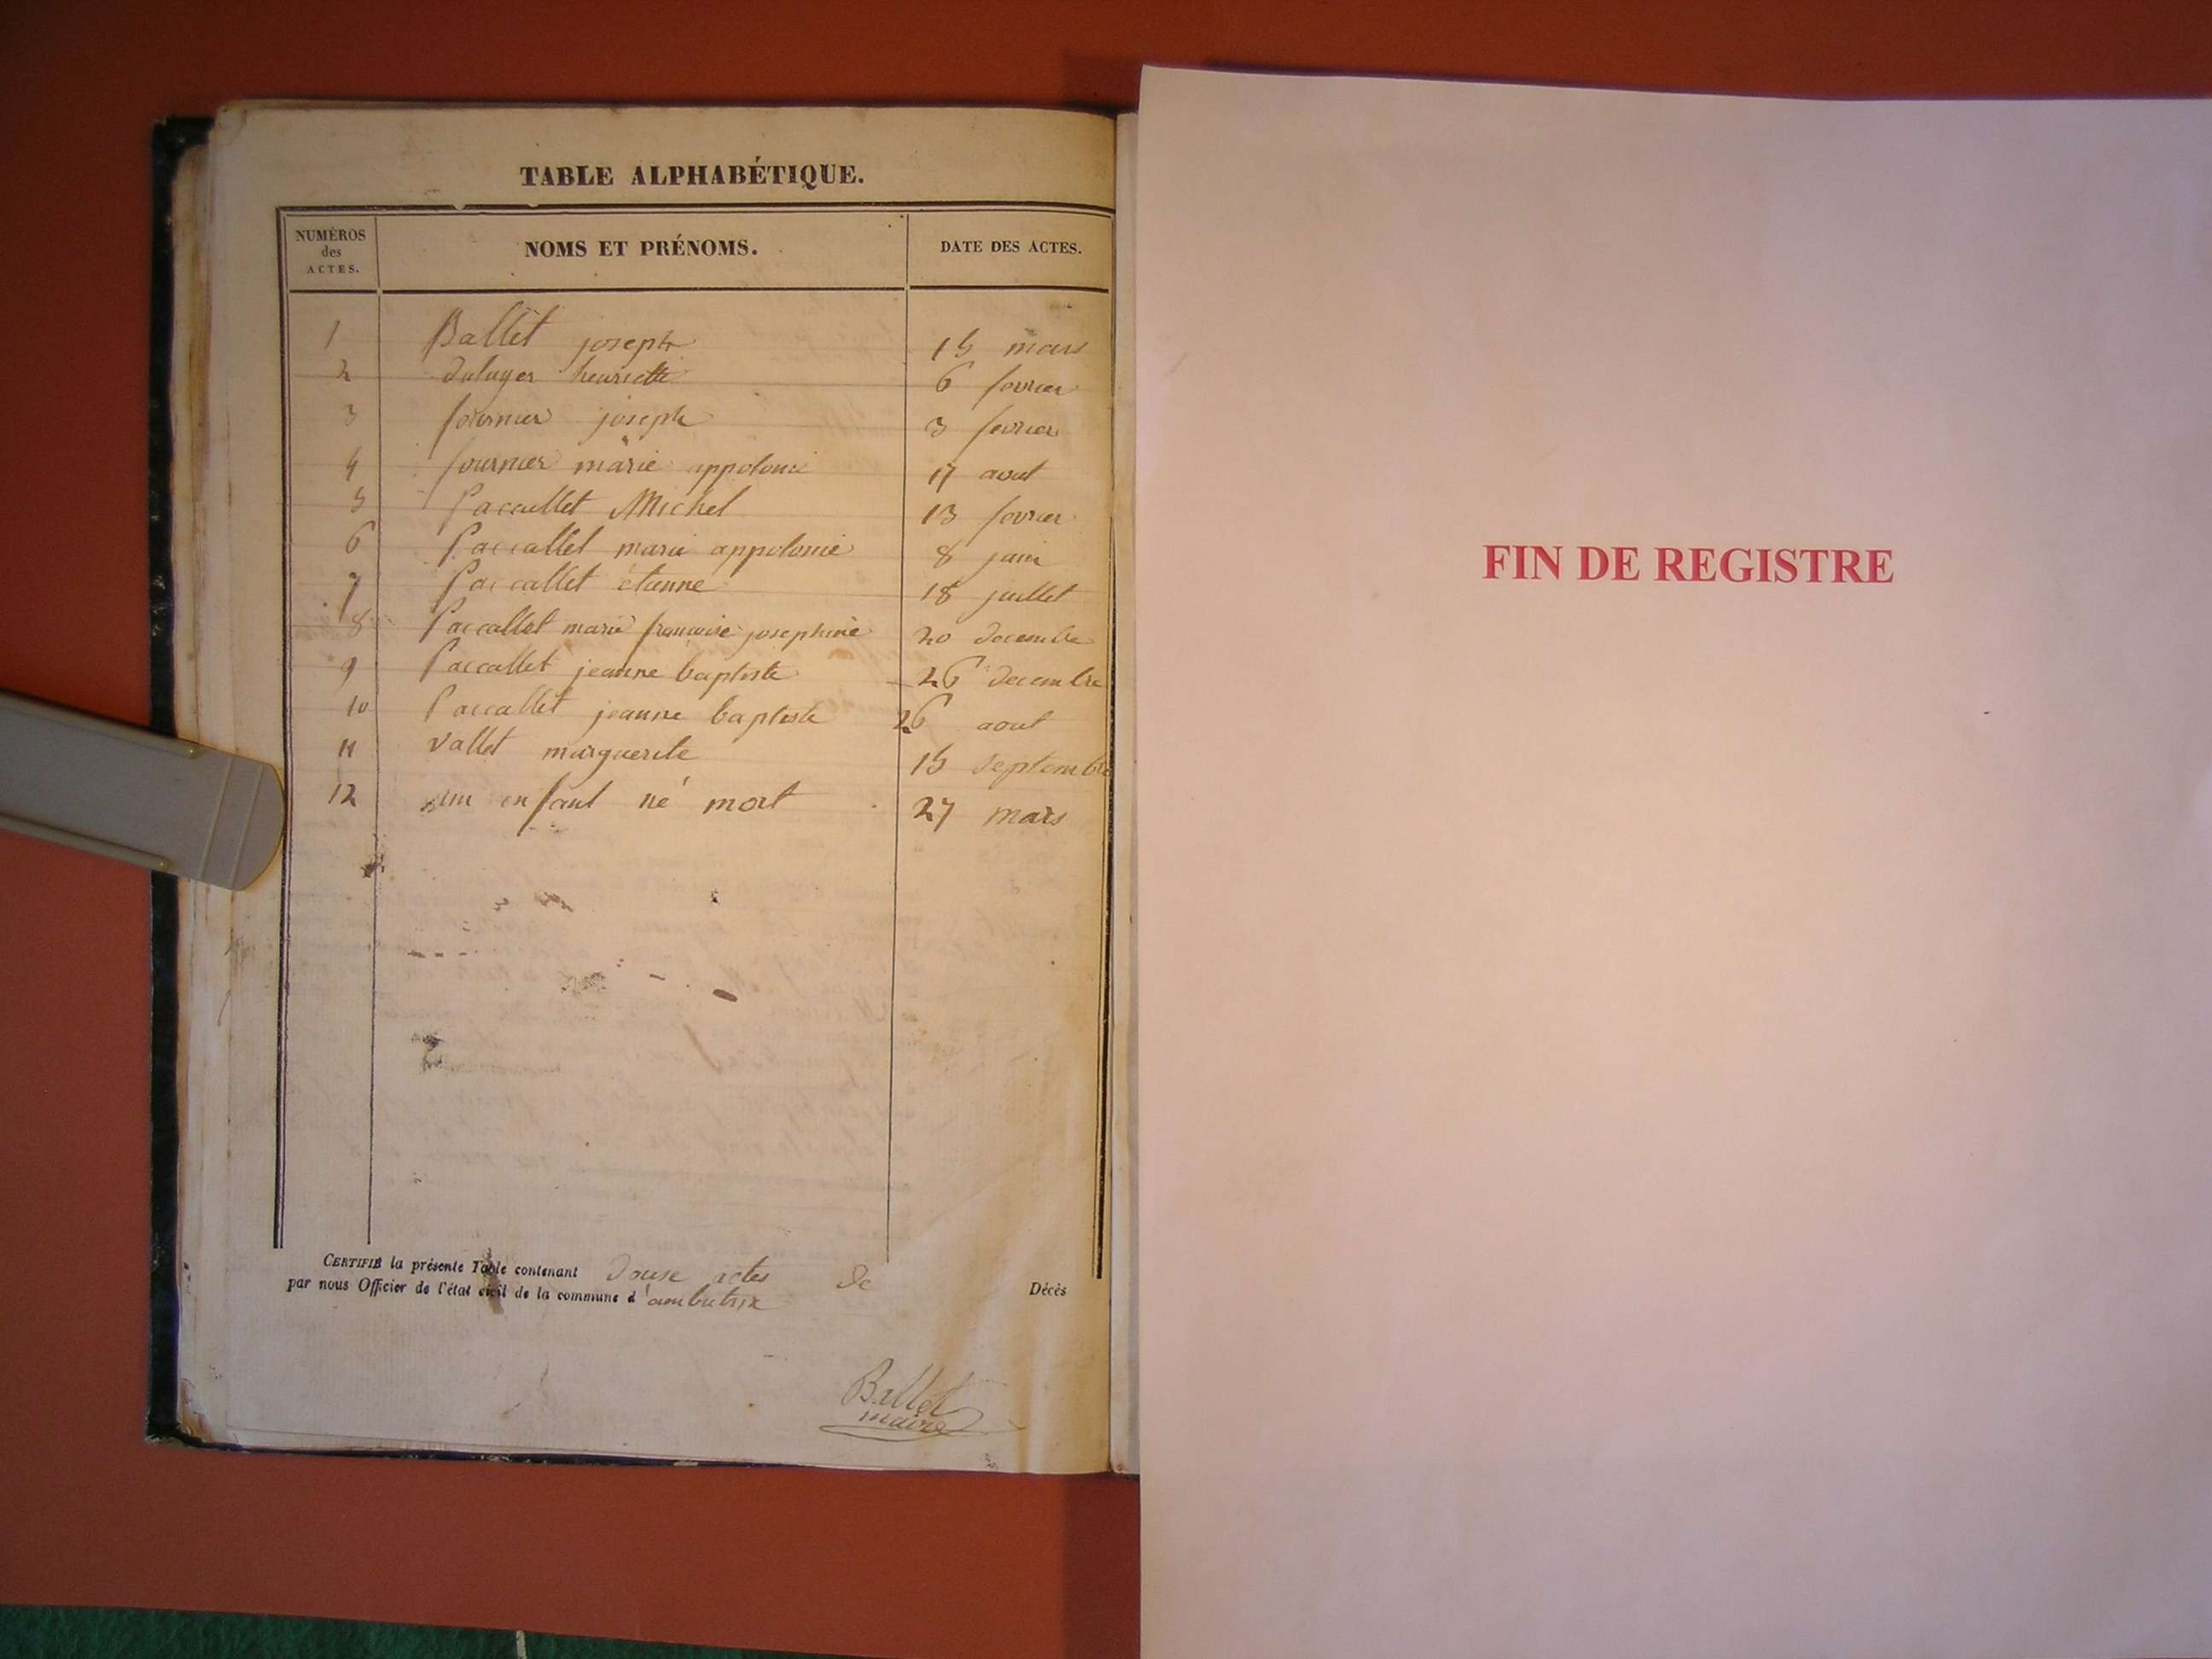 TABLE ALPHABÉTIQUE.
NUMÉROS
des
ACTES.
NOMS ET PRÉNOMS.
DATE DES ACTES.
1 Ballet joseph 15 mars
2 henriette 6 fevrier
3 fournier joseph 3 fevrier
4 fournier marie appolonie 17 aout
5 Paccallet Michel 13 fevrier
6 Paccallet marie appolonie 8 juin
7 Paccallet étienne 18 juillet
8 Paccallet marie francoise josephine 20 decembre
9 Paccallet jeanne baptiste 26 decembre
10 Paccallet jeanne baptiste 26 aout
11 Vallet marguerite 15 septembre
12 un enfant né mort 27 mars
CERTIFIÉ la présente Table contenant douse actes de Décès
par nous Officier de l'état civil de la commune d'ambutrix
Ballet
maire
FIN DE REGISTRE